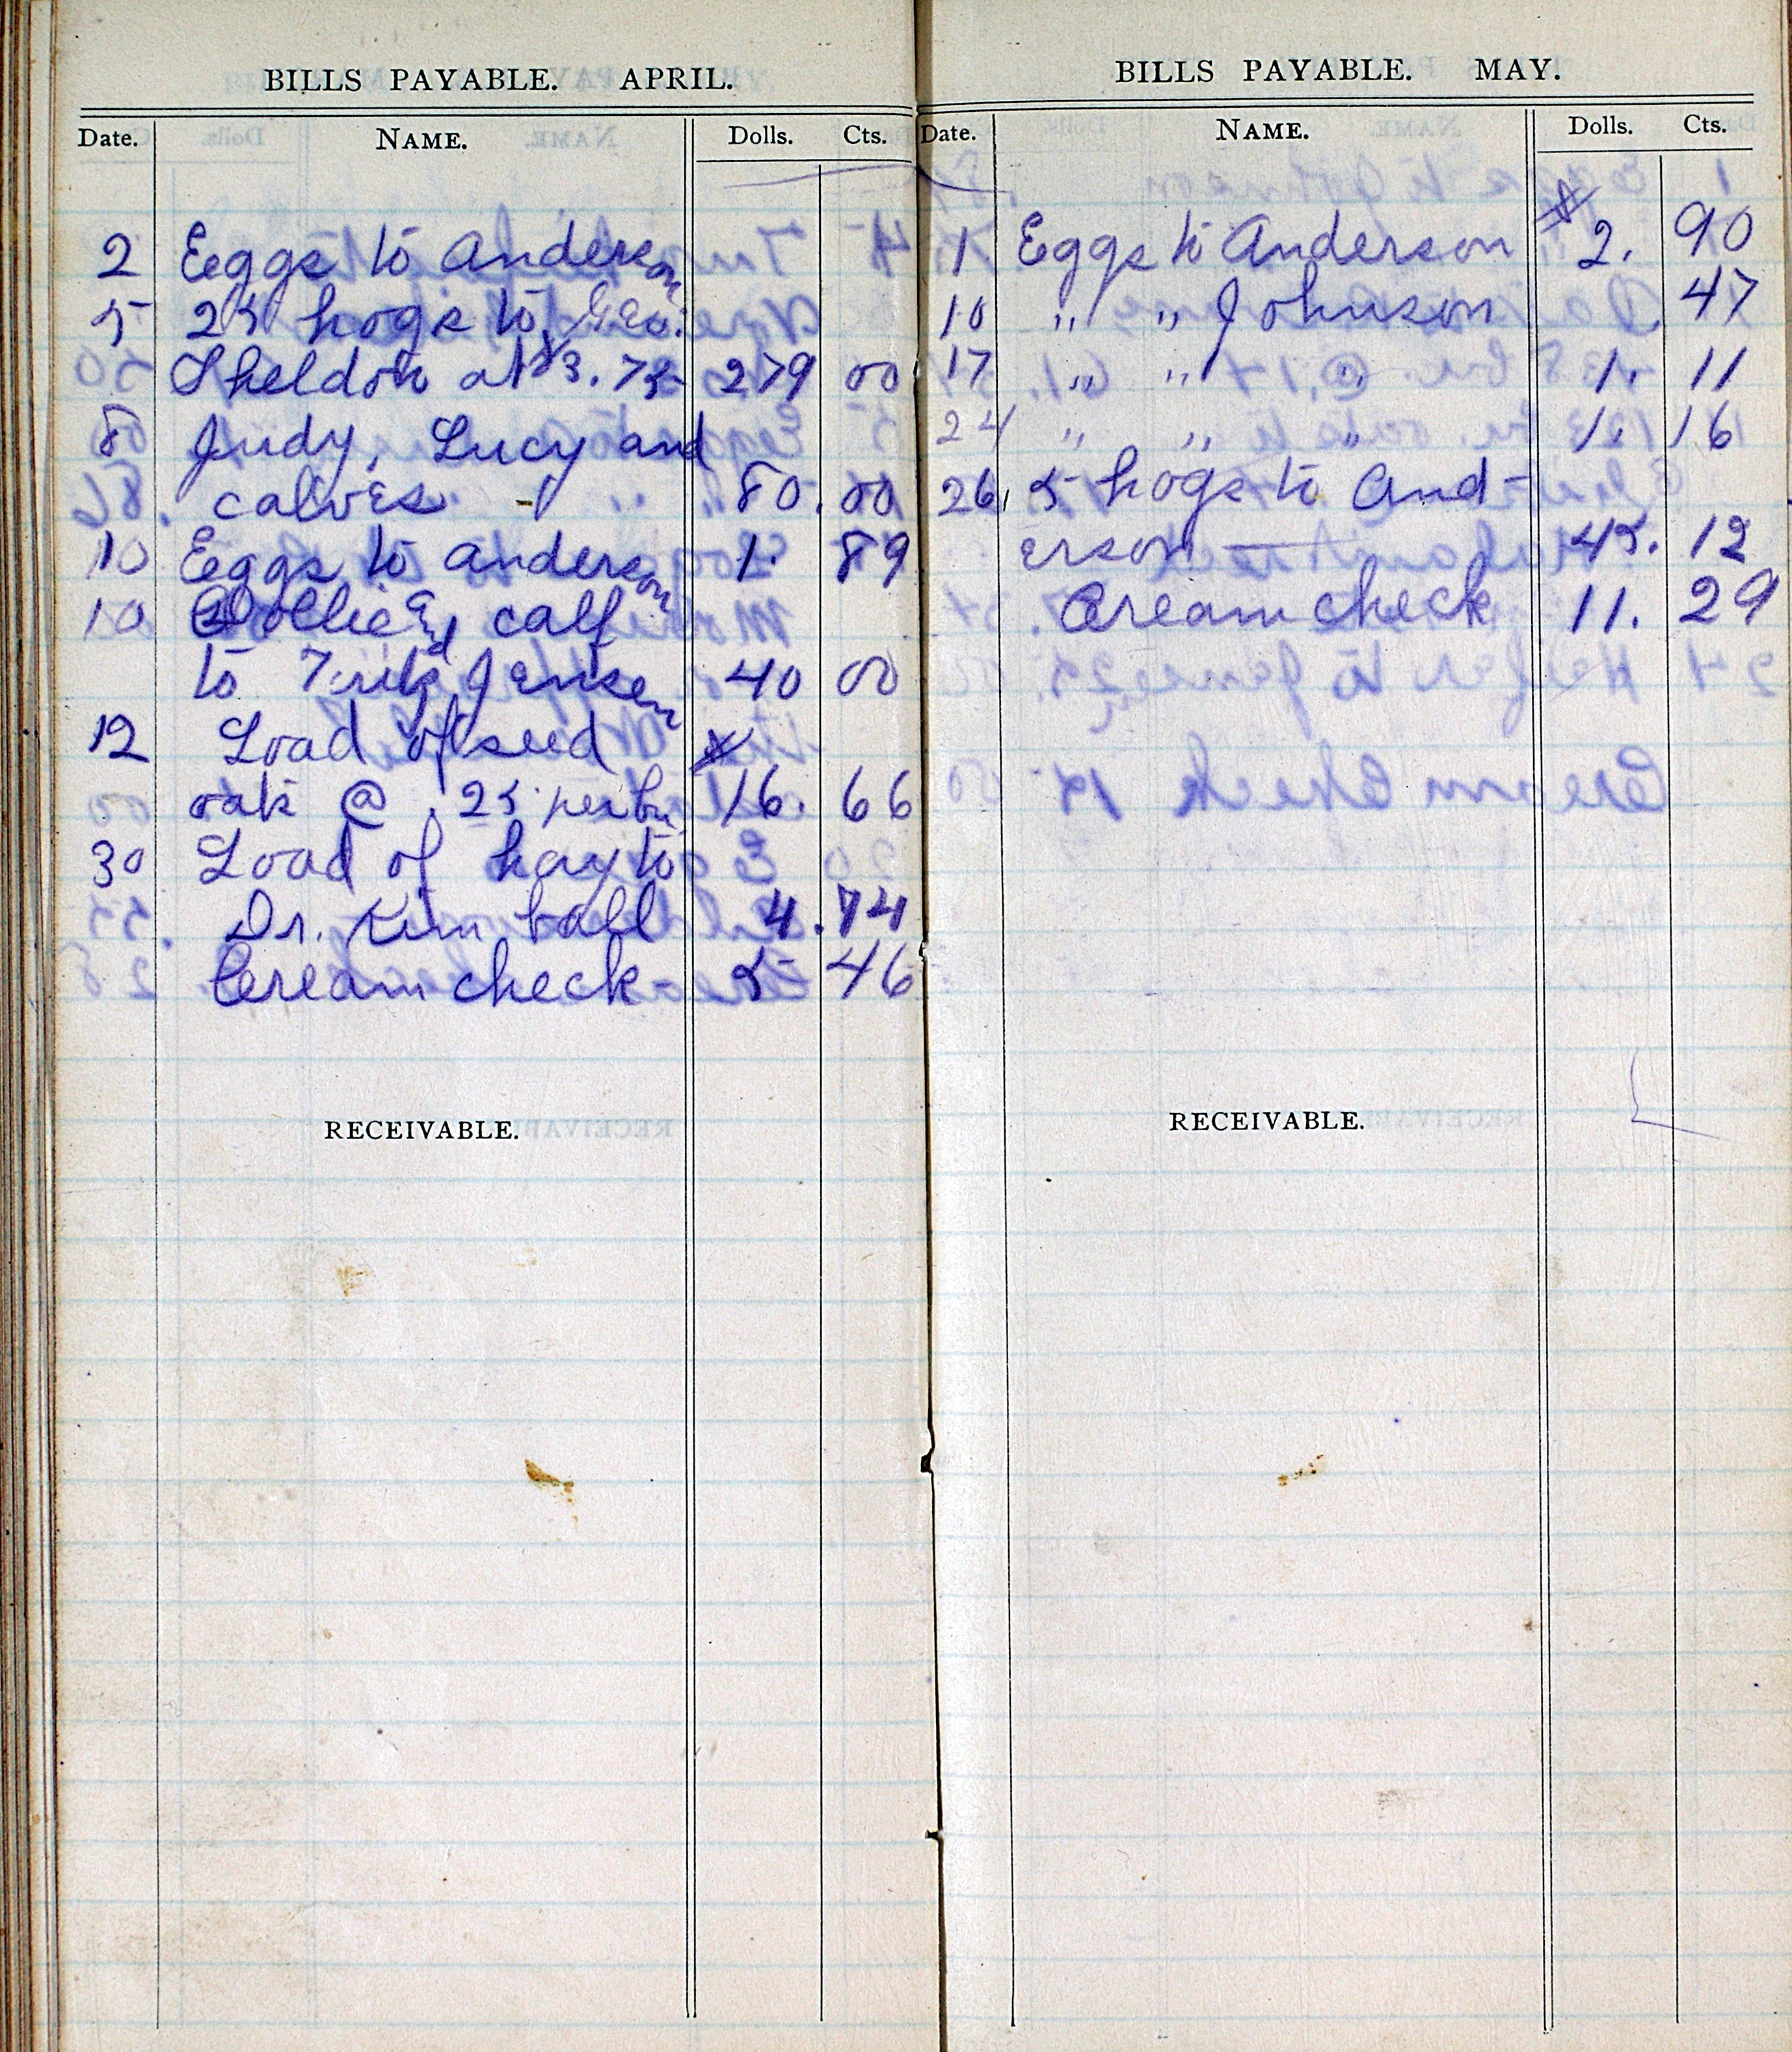 BILLS PAYABLE. APRIL.
Date. NAME. Dolls. Cts.
2 Eeggs to Anderson
5 25 hogs to Geo.
Sheldon at $3.75 279 00
8 Judy, Lucy and
calves - 80.00
10 Eggs to Anderson 1. 89
10 Dollie and calf
to Fritz Jensen 40 00
12 Load of seed $
oats @ .25 per bu 16. 66
30 Load of hay to
Dr. Kimball 4.74
Cream check- 5 46
RECEIVABLE.
BILLS PAYABLE. MAY.
Date. NAME. Dolls. Cts.
1 Eggs to Anderson $ 2. 90
10 " " Johnson 47
17 " " " 1. 11
24 " " " 1. 16
26 5 hogs to And-
erson 45. 12
Cream check 11. 29
RECEIVABLE.